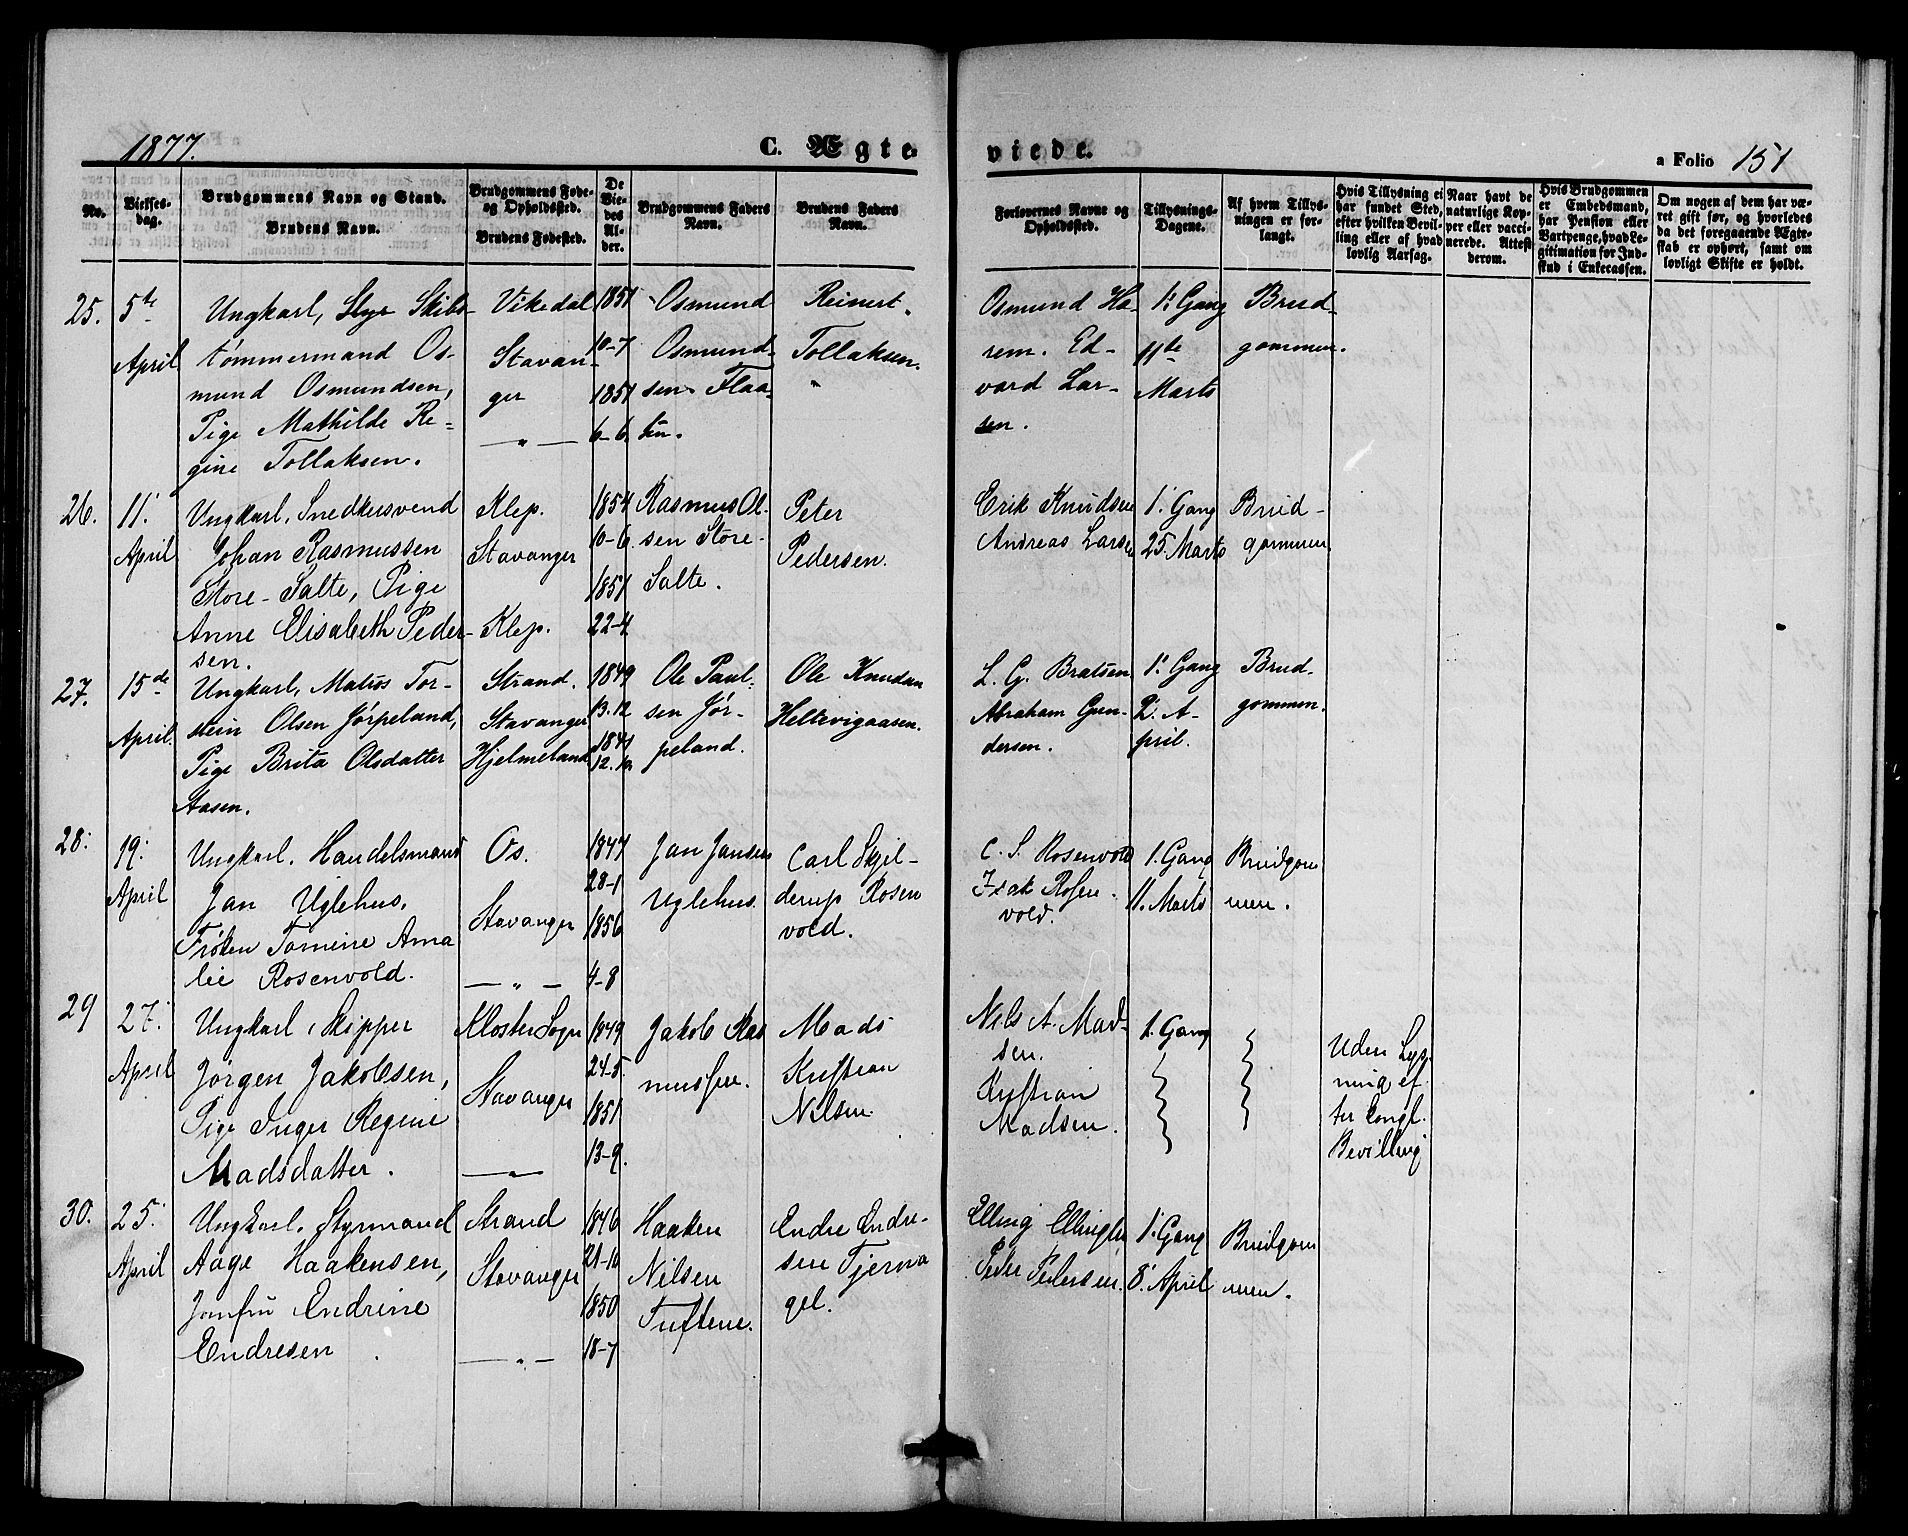 1877.
C. Ægte
viede.
a Folio 151
No.
Vielses-
dag.
Brudgommens Navn og Stand.
Brudens Navn.
Brudgommens Føde-
og Opholdssted.
Brudens Fødested.
De
Vie-
des
Al-
der.
Brudgommens Faders
Navn.
Brudens Faders
Navn.
Forlovernes Navne og
Opholdssted.
Tillysnings-
Dagene.
Af hvem Tillys-
ningen er for-
langt.
Hvis Tillysning ei
har fundet Sted,
efter hvilken Bevil-
ling eller af hvad
lovlig Aarsag.
Naar havt de
naturlige Kop-
per eller vacci-
nerede. Attest
derom.
Hvis Brudgommen
er Embedsmand,
har Pension eller
Vartpenge, hvad Le-
gitimation for Ind-
skud i Enkecassen.
Om nogen af dem har væ-
ret gift før, og hvorledes
da det foregaaende Ægte-
skab er ophørt, samt om
lovligt Skifte er holdt.
25.
5te
April
Ungkarl, Skibs-
tømmermand Os-
mund Osmundsen,
Pige Mathilde Re-
gine Tollaksen.
Vikedal
Stavan-
ger
— " —
1851
10-7
1851
6-6
Osmund
Osmund-
sen Flaa-
ten.
Reinert
Tollaksen.
"
Osmund Ha-
rem. Ed-
vard Lar-
sen.
1: Gang
11te
Marts
Brud-
gommen.
26.
11.
April
Ungkarl, Snedkersvend
Johan Rasmussen
Store-Salte, Pige
Anne Elisabeth Peder-
sen.
Klep.
Stavanger
Klep.
1854
10-6
1851
22-4
Rasmus Ol-
sen Store-
Salte.
Peter
Pedersen.
Erik Knudsen
Andreas Larsen
1. Gang
25. Marts
Brud-
gommen
27.
15de
April.
Ungkarl, Matias Tor-
stein Olsen Jørpeland,
Pige Brita Olsdatter
Aasen.
Strand.
Stavanger
Hjelmeland
1849
13.12
1841
12.10
Ole Paul-
sen Jør-
peland.
Ole Knudsen
Heltevigaasen.
L. G. Bratsen
Abraham Gun-
dersen.
1. Gang
2. A-
pril.
Brud-
gommen.
28.
19.
April
Ungkarl, Handelsmand
Jan Uglehus.
Frøken Tomine Ama
lie Rosenvold.
Os.
Stavanger
— " —
1847
28-1
1856
4-8
Jan Jansen
Uglehus.
Carl Skjel-
derup Rosen
vold.
C. S. Rosenvold
Isak Rosen-
vold.
1. Gang
11. Marts
Brudgom
men.
29
27.
April
Ungkarl, Skipper
Jørgen Jakobsen,
Pige Inger Regine
Madsdatter.
Kloster Sogn
Stavanger
— " —
1849
24-5.
1851
13-9.
Jakob Ras
mussen.
Mads
Kristian
Nilsen.
Nils A. Mad-
sen.
Kristian
Madsen.
1. Gang
Uden Lys-
ning ef-
ter Kongl.
Bevilling
30.
25.
April
Ungkarl, Styrmand
Aage Haakensen,
Jomfru Endrine
Endresen.
Strand
Stavanger
— " —
1846
21-10
1850
18-7
Haaken
Nilsen
Tuftene.
Endre Endre-
sen Tjerna
gel.
Elling Ellingsen
Peder Pedersen.
1. Gang
8. April
Brudgom
men.